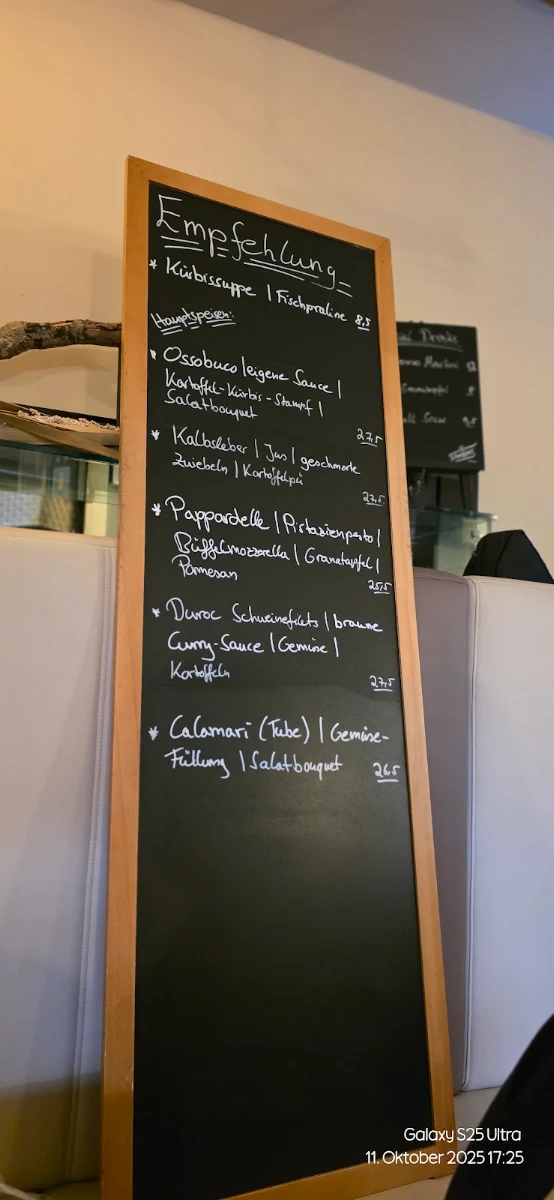 Empfehlung
* Kürbissuppe | Fischpraline 8,5
Hauptspeisen:
* Ossobuco | eigene Sauce |
Kartoffel-Kürbis-Stampf |
Salatbouquet
27,5
* Kalbsleber | Jus | geschmorte
Zwiebeln | Kartoffelpü
27,5
* Pappardelle | Pistazienpesto |
Büffelmozzarella | Granatapfel |
Parmesan
25,5
* Duroc Schweinefilets | braune
Curry-Sauce | Gemüse |
Kartoffeln
27,5
* Calamari (Tube) | Gemüse-
Füllung | Salatbouquet 26,5
Drinks
Martini 12
9,5
Galaxy S25 Ultra
11. Oktober 2025 17:25